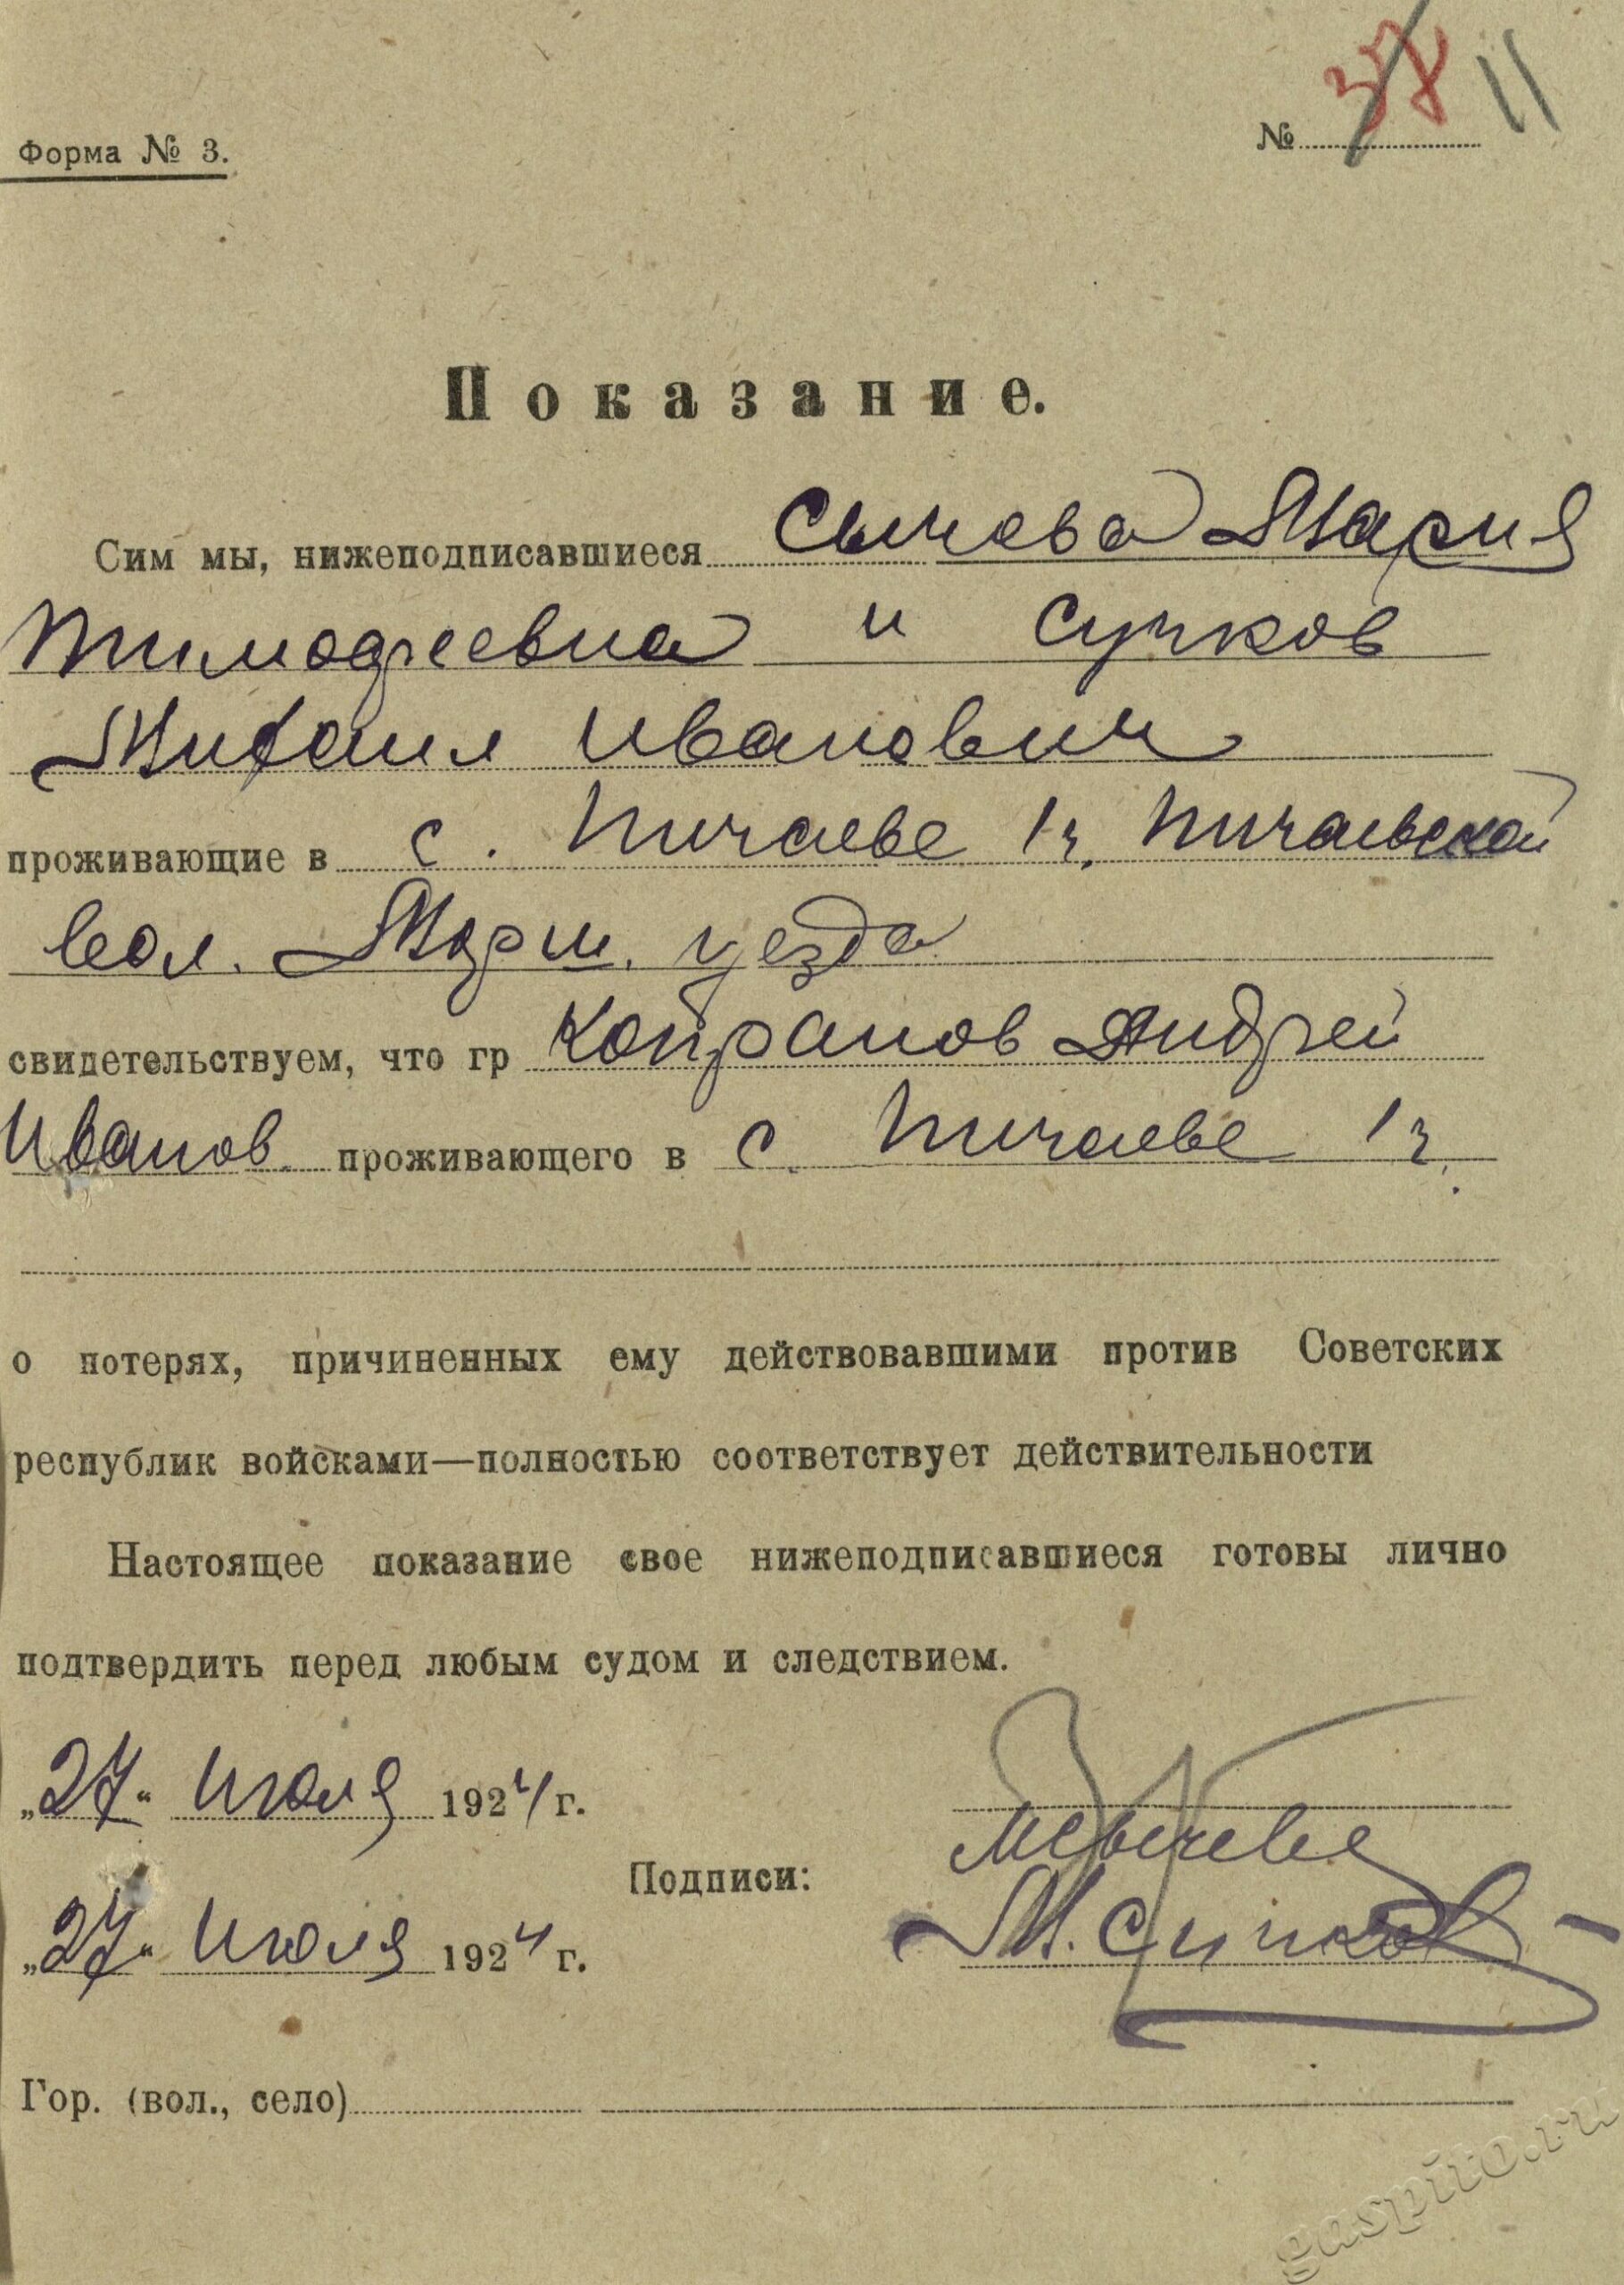 37 11
Форма № 3.
№
Показание.
Сим мы, нижеподписавшиеся Сычева Мария
Тимофеевна и Сучков
Михаил Иванович
проживающие в с. Пичаеве 1 ч. Пичаевской
вол. Морш. уезда
свидетельствуем, что гр Андрей
Иванов. проживающего в с. Пичаеве 1 ч.
о потерях, причиненных ему действовавшими против Советских
республик войсками—полностью соответствует действительности
Настоящее показание свое нижеподписавшиеся готовы лично
подтвердить перед любым судом и следствием.
„27“ Июля 1924 г.
МСычева
Подписи:
„27“ Июля 1924 г.
М. Сучков
Гор. (вол., село)
gaspito.ru